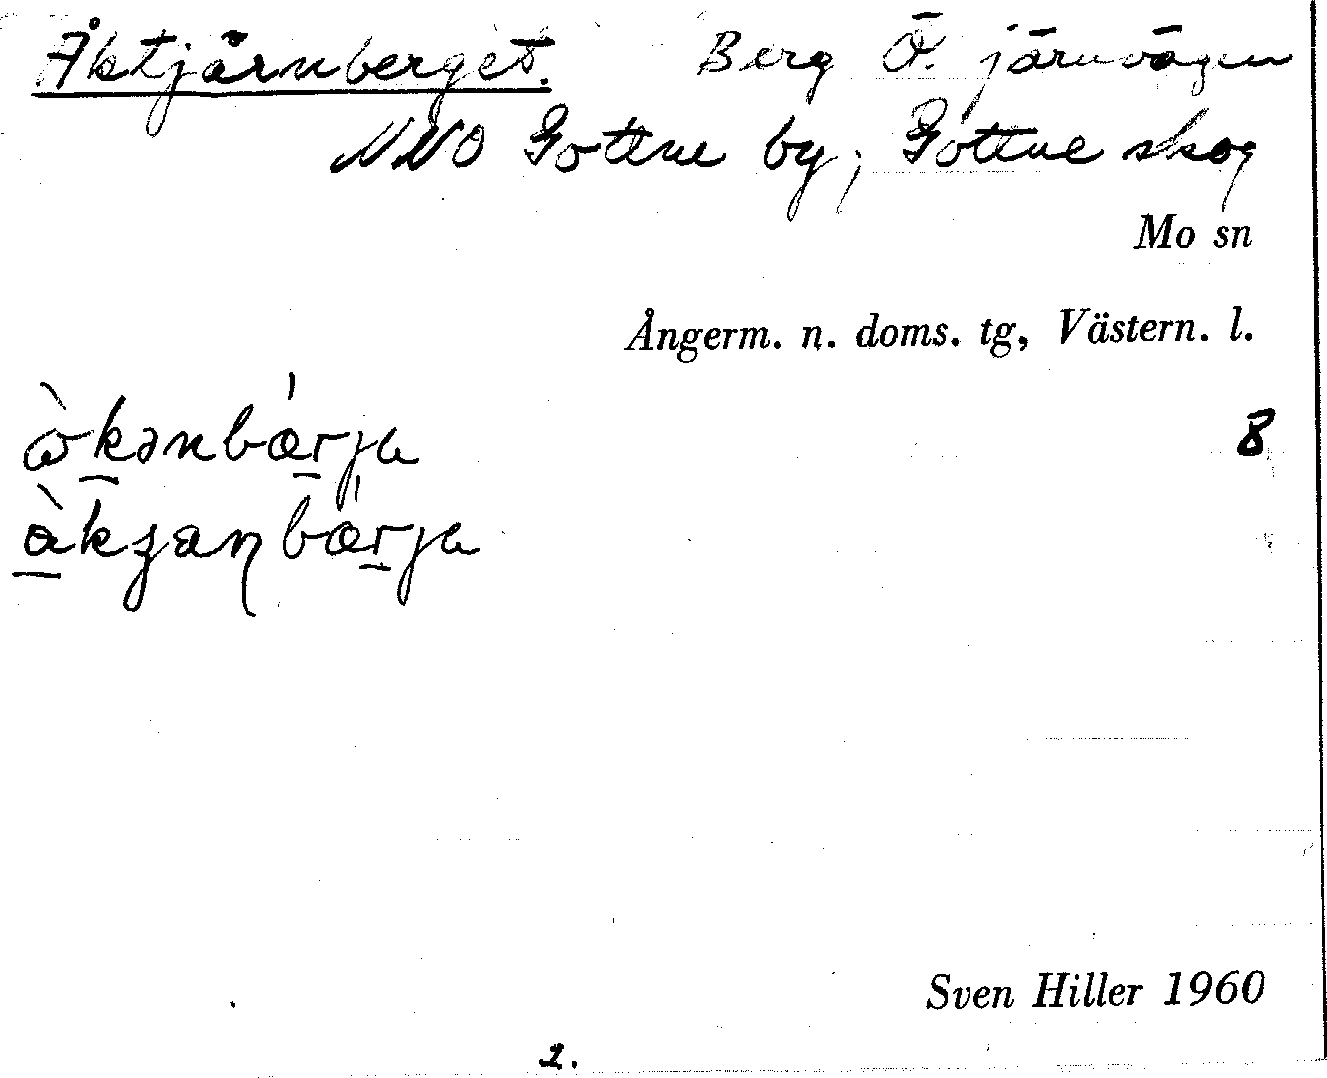 Åktjärnberget. Berg Ö. järnvägen
NNO Gottne by; Gottne skog
Mo sn
Ångerm. n. doms. tg, Västern. l.
8
Sven Hiller 1960
2.